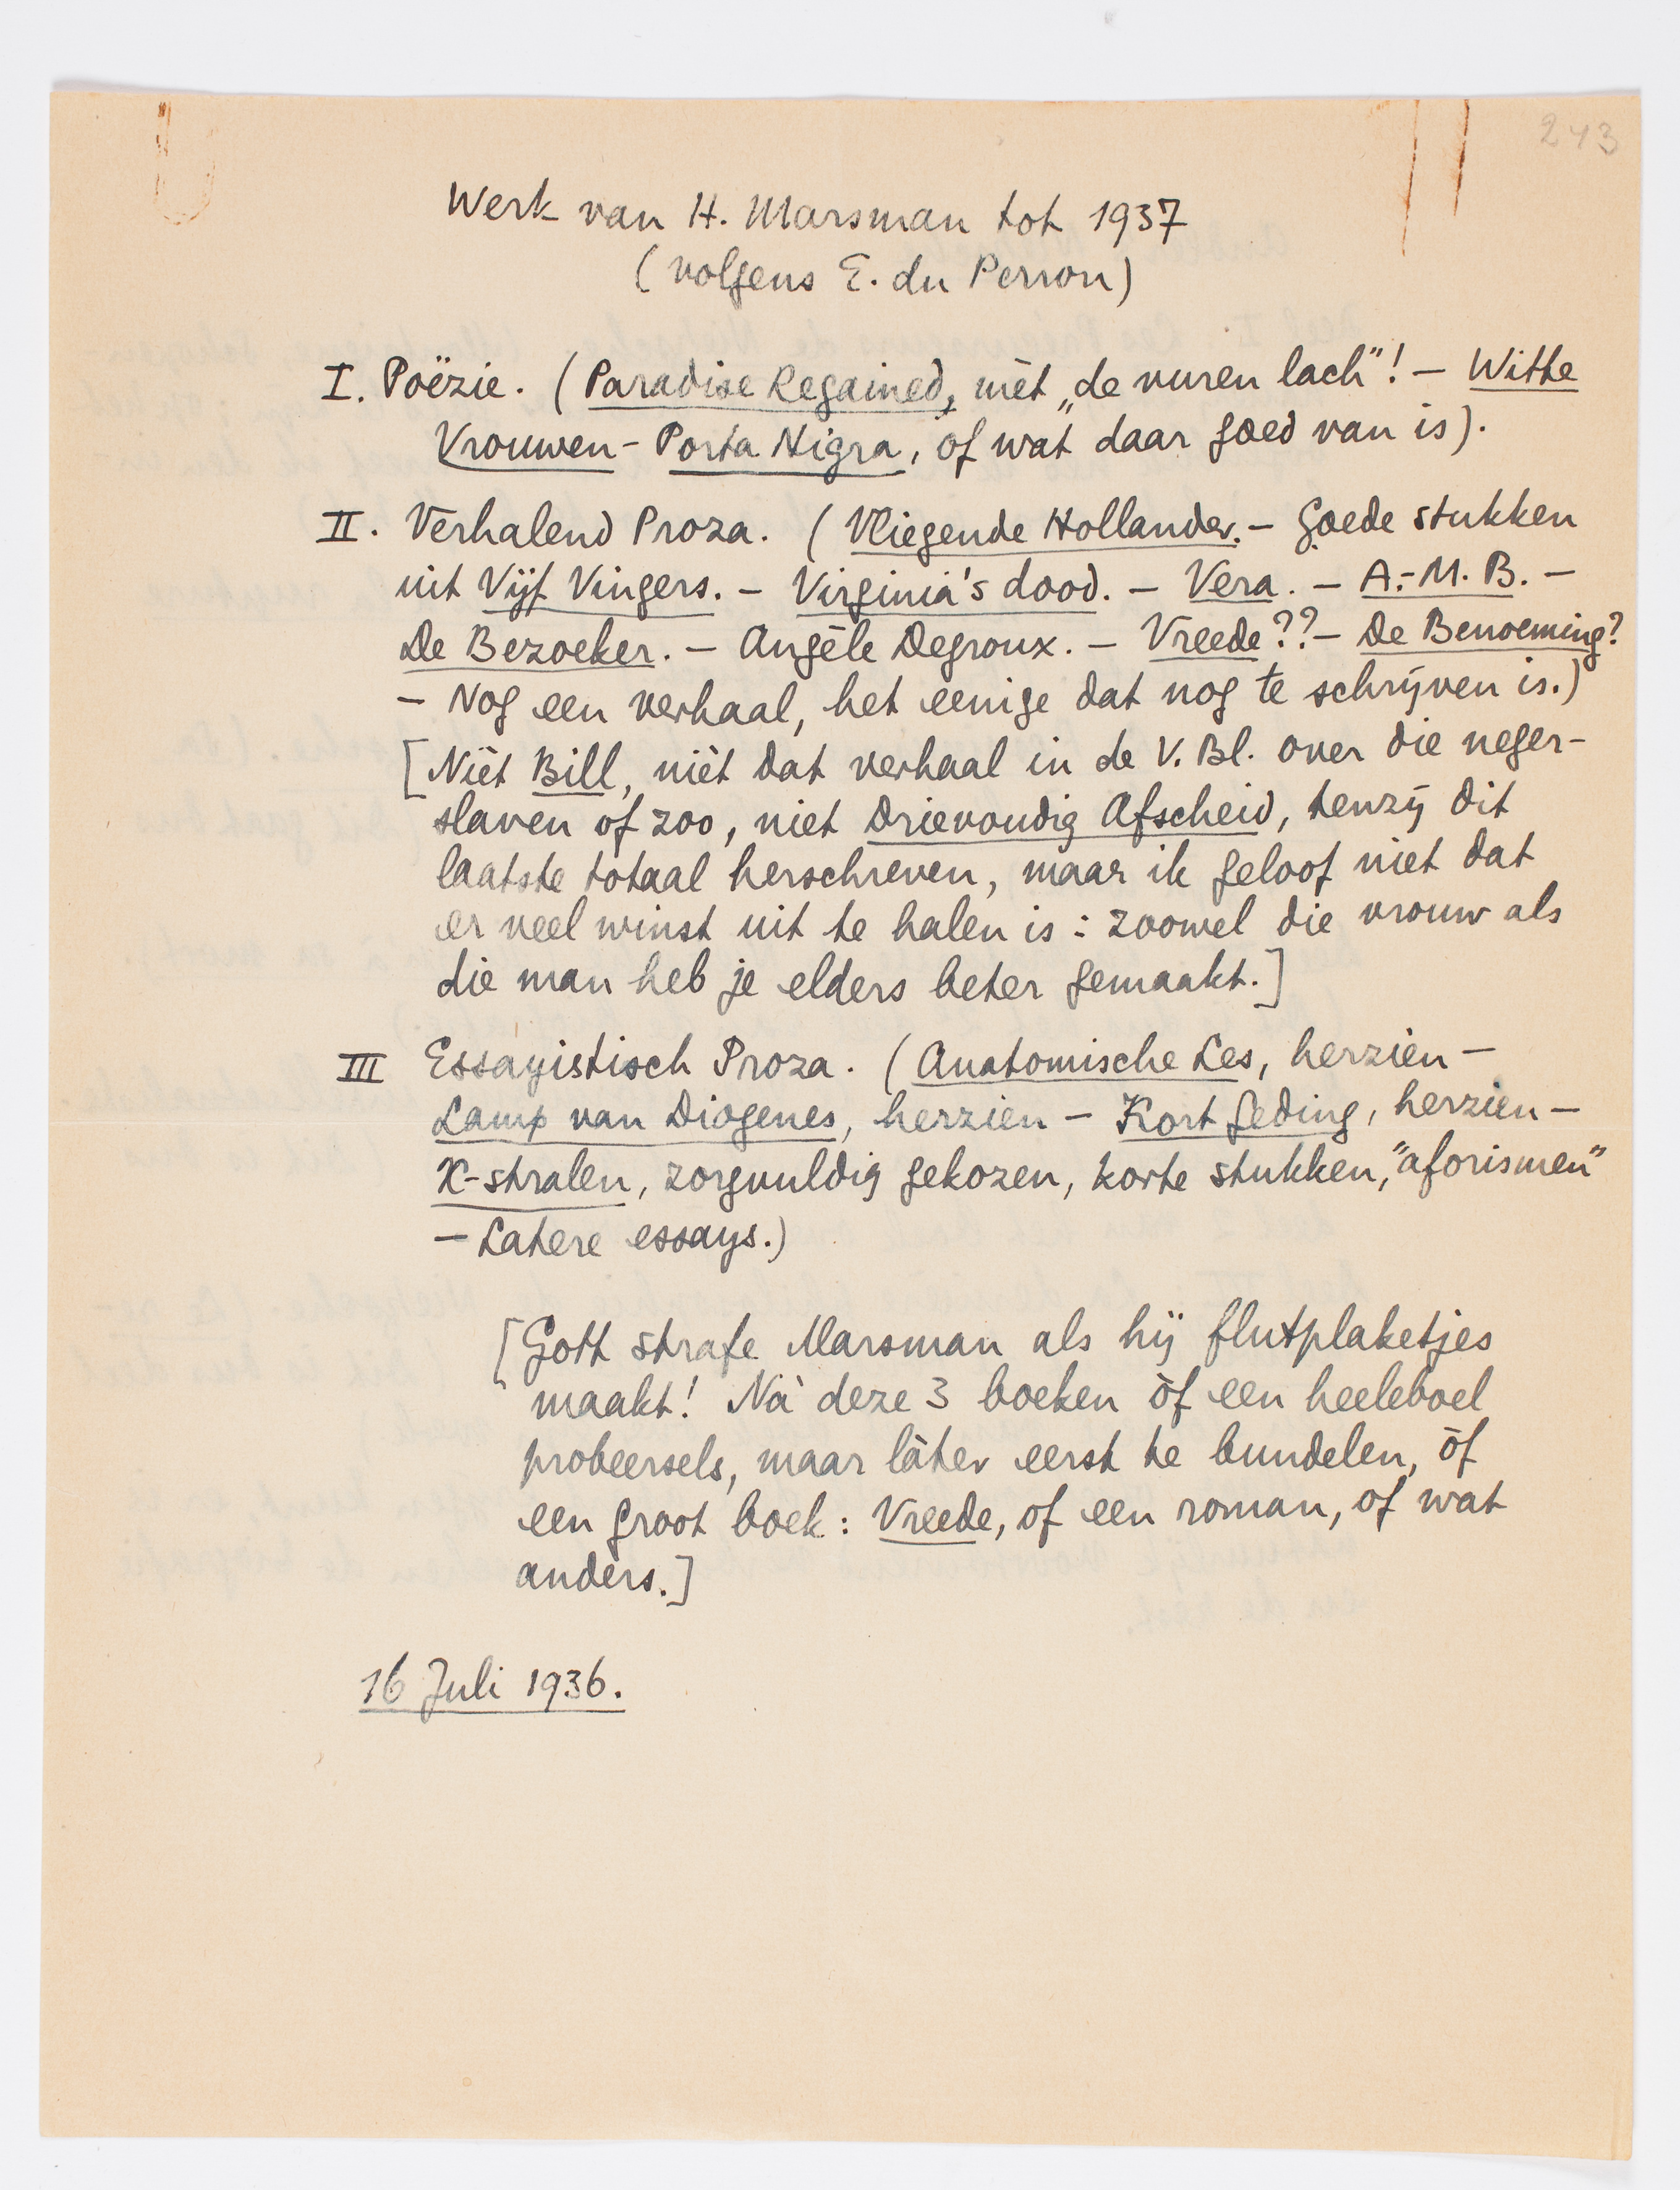 243
Werk van H. Marsman tot 1937
(volgens E. du Perron)
I. Poëzie. (Paradise Regained, mèt „de vuren lach"! — Witte
Vrouwen - Porta Nigra, of wat daar goed van is).
II. Verhalend Proza. (Vliegende Hollander. — Goede stukken
uit Vijf Vingers. — Virginia's dood. — Vera. — A.-M. B. —
De Bezoeker. — Angèle Degroux. — Vreede?? — De Benoeming?
— Nog een verhaal, het eenige dat nog te schrijven is.)
[Nièt Bill, nièt dat verhaal in de V. Bl. over die neger-
slaven of zoo, niet Drievoudig Afscheid, tenzij dit
laatste totaal herschreven, maar ik geloof niet dat
er veel winst uit te halen is: zoowel die vrouw als
die man heb je elders beter gemaakt.]
III Essayistisch Proza. (Anatomische Les, herzien —
Lamp van Diogenes, herzien — Kort geding, herzien —
X-stralen, zorgvuldig gekozen, korte stukken, "aforismen"
— Latere essays.)
[Gott strafe Marsman als hij flutplaketjes
maakt! Nà deze 3 boeken òf een heeleboel
probeersels, maar làter eerst te bundelen, òf
een groot boek: Vreede, of een roman, of wat
anders.]
16 Juli 1936.